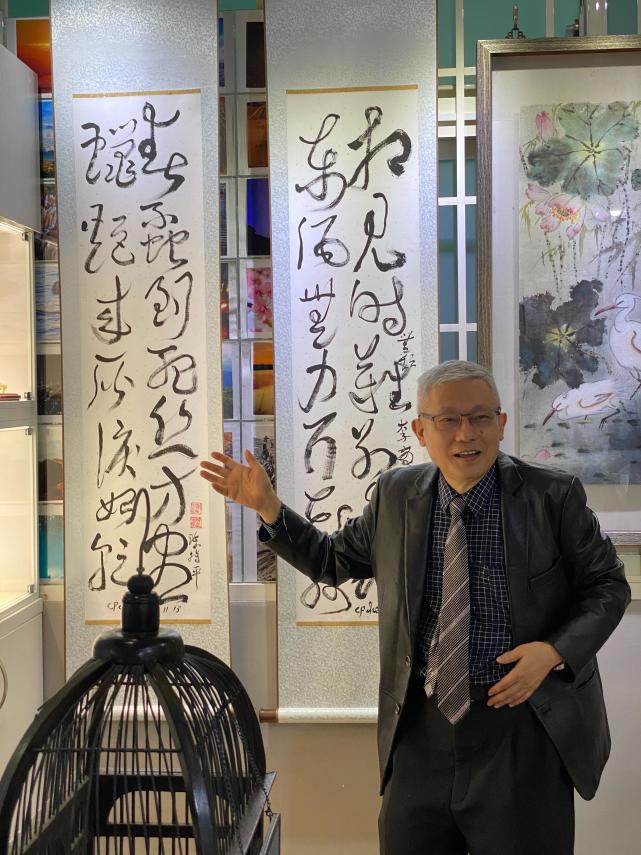 相見時難別
無題 李商
東風無力百花殘
春蠶到死絲方盡
蠟炬成灰淚始乾
陳持平
11.13